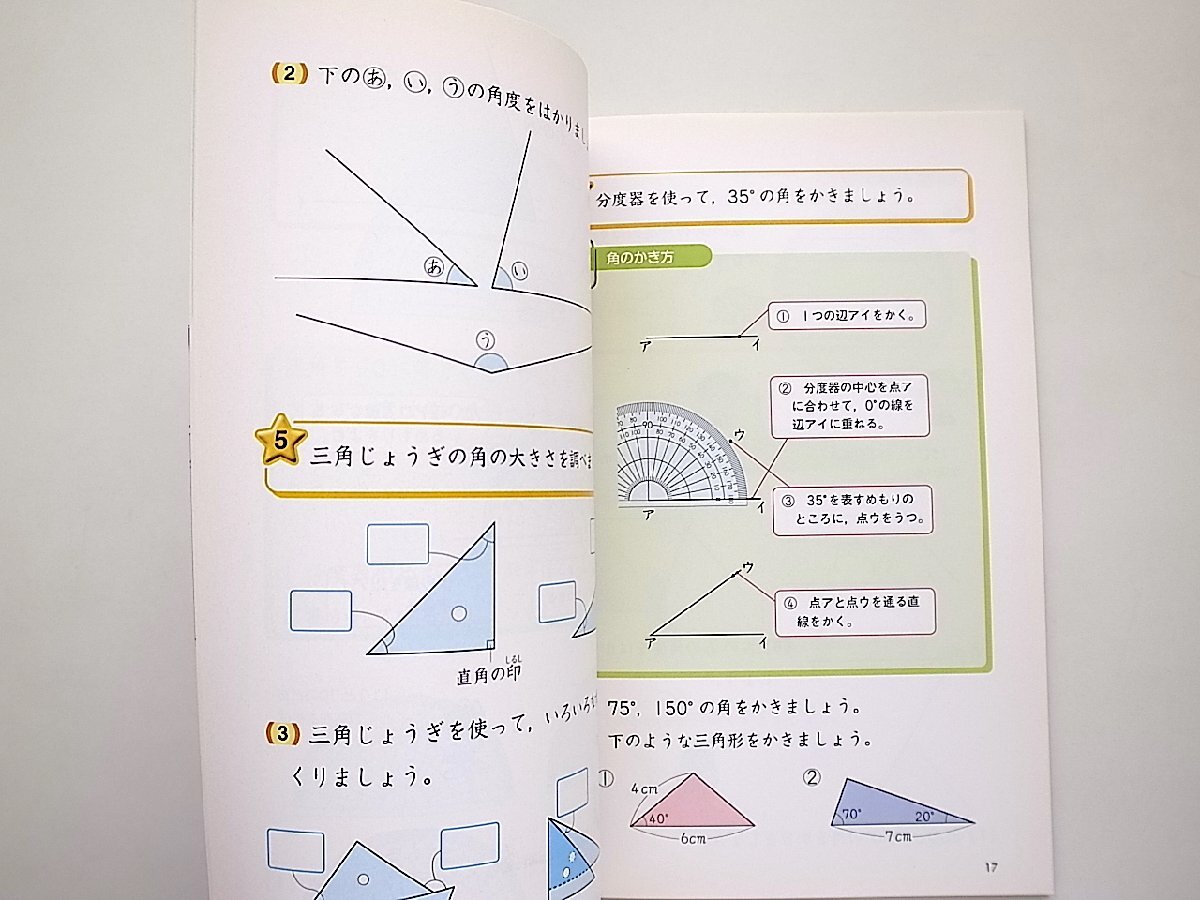 2 下のあ, い, うの角度をはかりまし
あ
い
う
5
三角じょうぎの角の大きさを調べま
直角の印
しるし
3 三角じょうぎを使って, いろいろな
くりましょう。
分度器を使って, 35°の角をかきましょう。
角のかき方
① 1つの辺アイをかく。
ア イ
② 分度器の中心を点ア
に合わせて, 0°の線を
辺アイに重ねる。
ウ
③ 35°を表すめもりの
ところに, 点ウをうつ。
ア イ
ウ
④ 点アと点ウを通る直
線をかく。
ア イ
75°, 150°の角をかきましょう。
下のような三角形をかきましょう。
① ②
4cm
40°
6cm
70° 20°
7cm
17